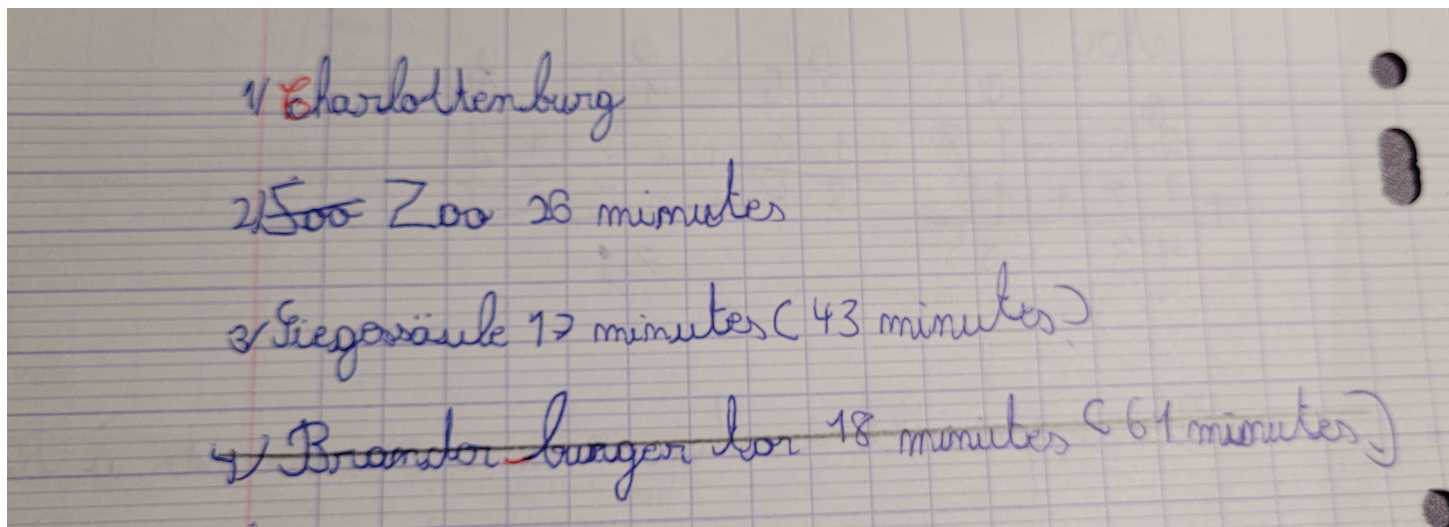 1) Charlottenburg
2) Soo Zoo 26 minutes
3) Siegessäule 17 minutes (43 minutes)
4) Brandor-burger tor 18 minutes (61 minutes)